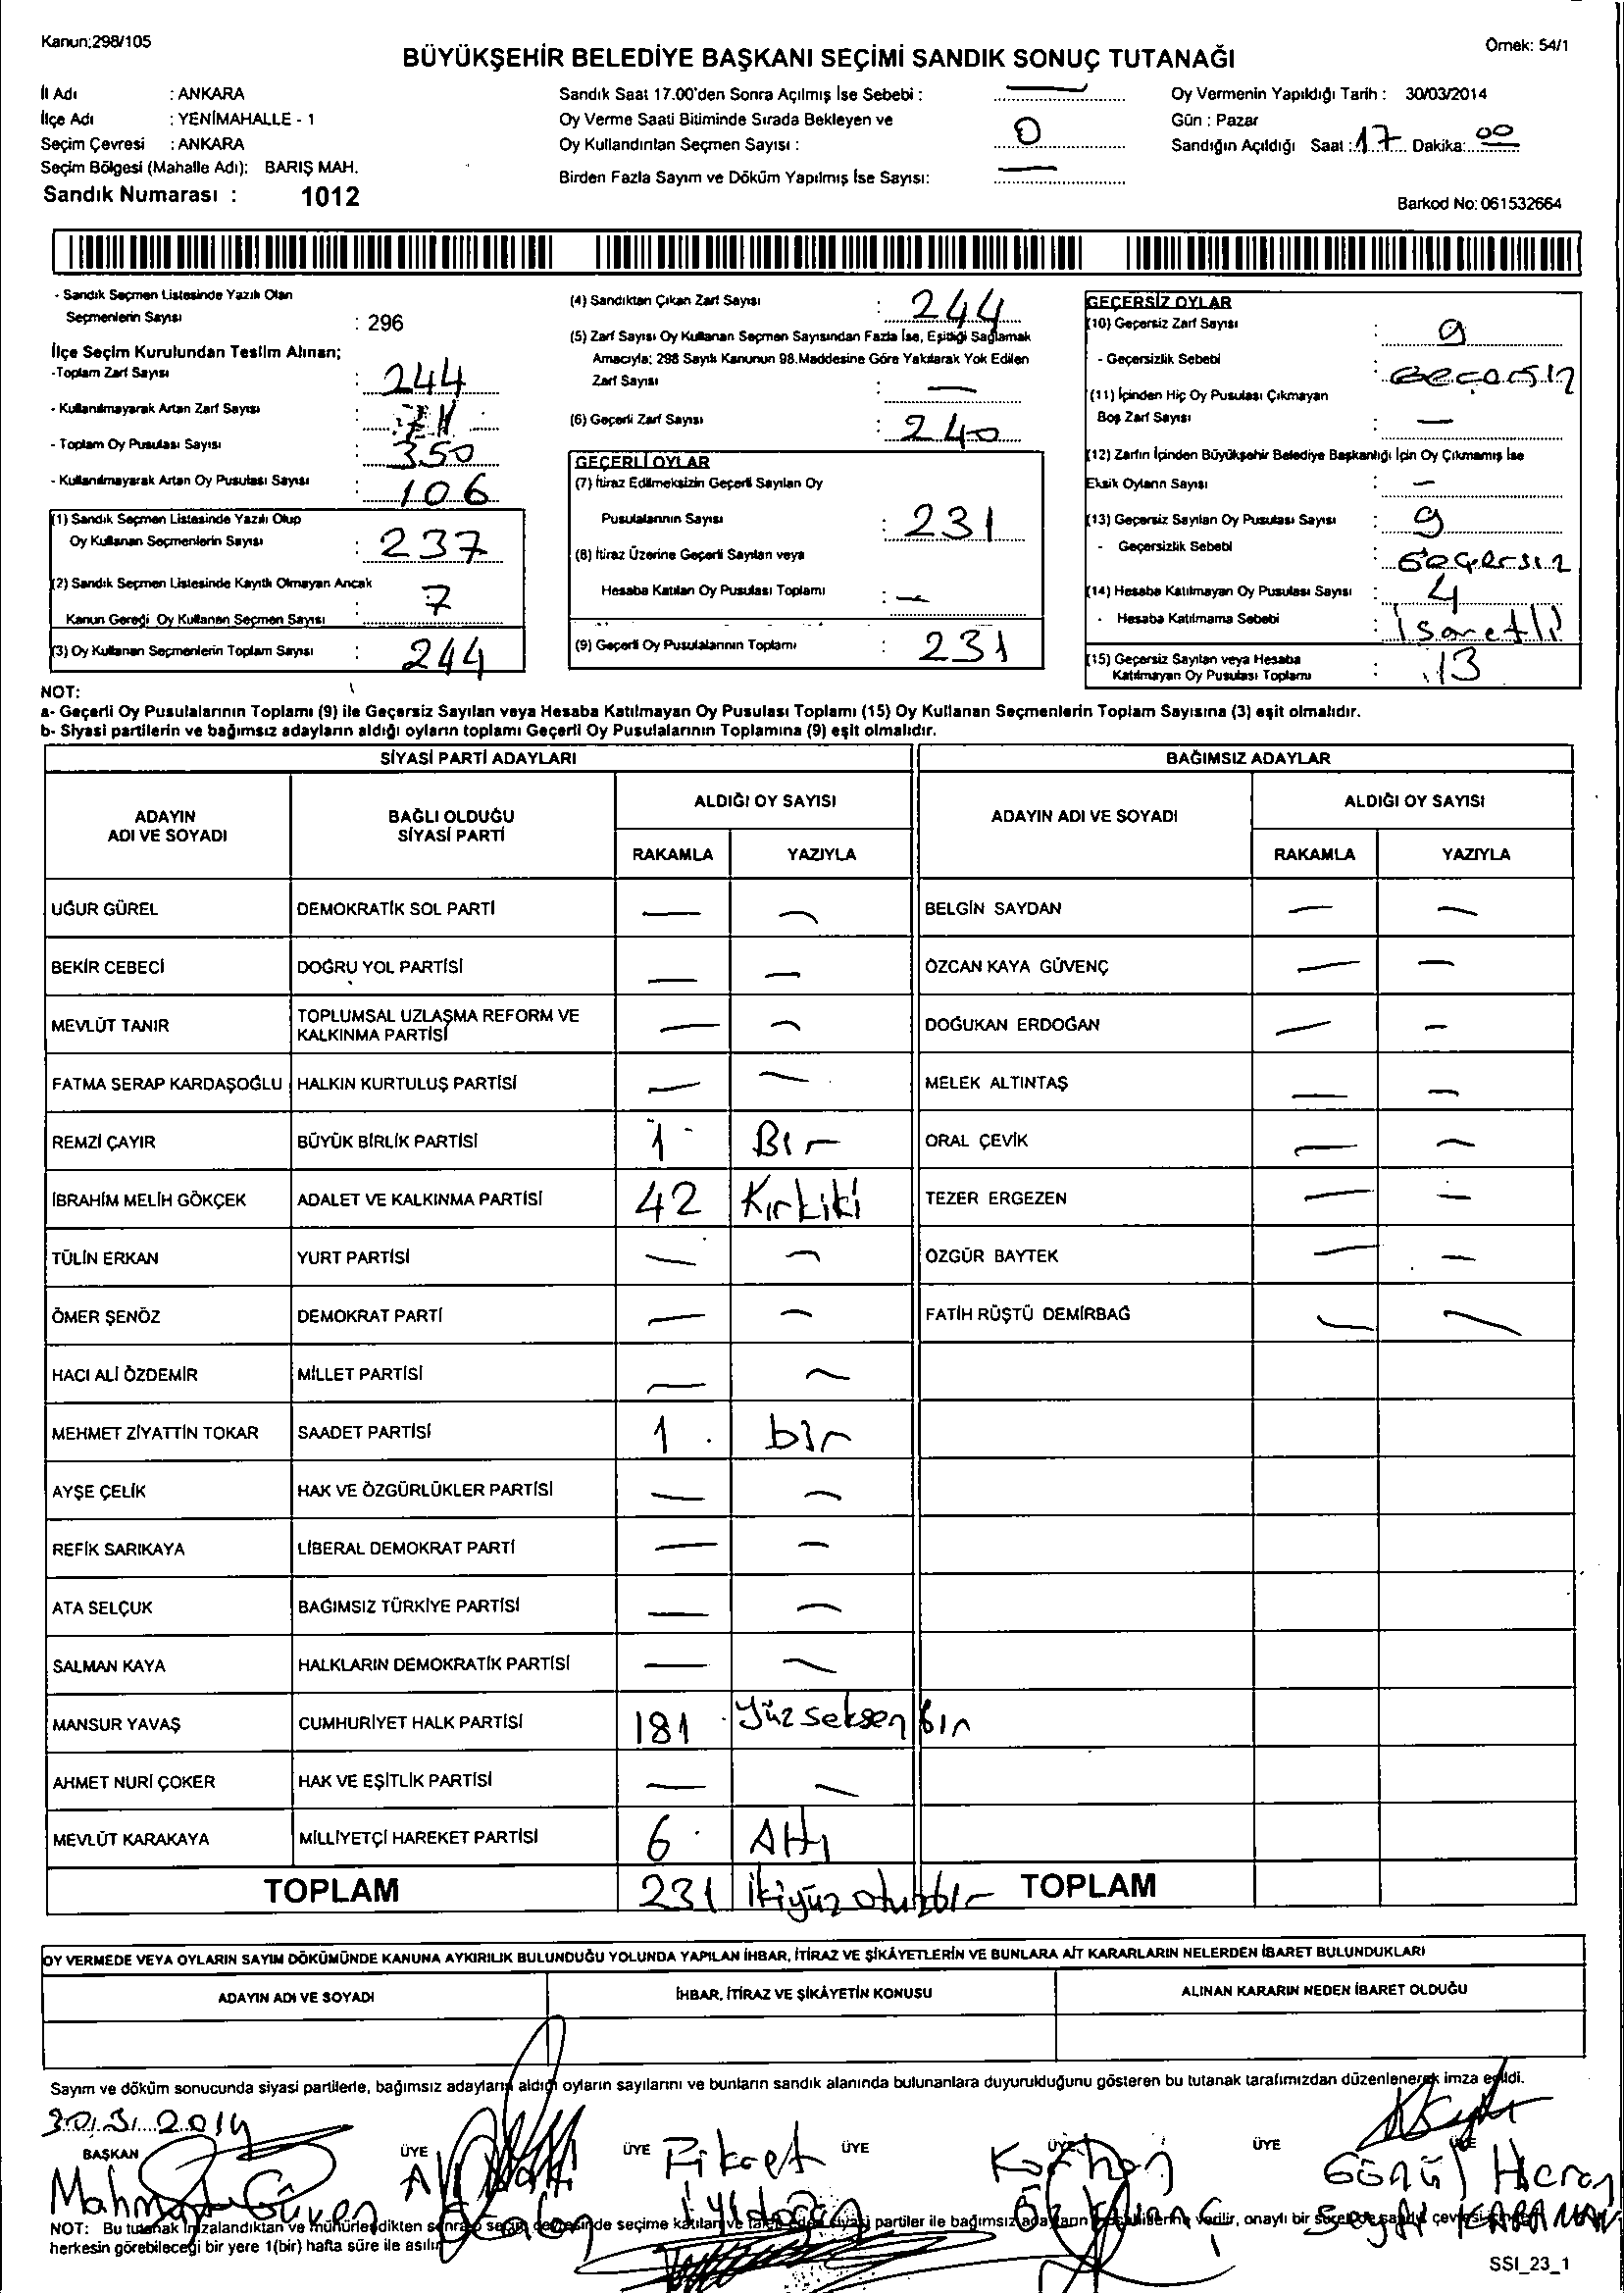 Kanun;298/105
Örnek: 54/1
BÜYÜKŞEHİR BELEDİYE BAŞKANI SEÇİMİ SANDIK SONUÇ TUTANAĞI
İl Adı : ANKARA
İlçe Adı : YENİMAHALLE - 1
Seçim Çevresi : ANKARA
Seçim Bölgesi (Mahalle Adı): BARIŞ MAH.
Sandık Numarası : 1012
Sandık Saat 17.00'den Sonra Açılmış İse Sebebi : —
Oy Verme Saati Bitiminde Sırada Bekleyen ve
Oy Kullandırılan Seçmen Sayısı : 0
Birden Fazla Sayım ve Döküm Yapılmış İse Sayısı: —
Oy Vermenin Yapıldığı Tarih : 30/03/2014
Gün : Pazar
Sandığın Açıldığı Saat : 17 Dakika: 00
Barkod No: 061532664
- Sandık Seçmen Listesinde Yazılı Olan
Seçmenlerin Sayısı : 296
İlçe Seçim Kurulundan Teslim Alınan;
-Toplam Zarf Sayısı : 244
- Kullanılmayarak Artan Zarf Sayısı :
- Toplam Oy Pusulası Sayısı : 350
- Kullanılmayarak Artan Oy Pusulası Sayısı : 106
(1) Sandık Seçmen Listesinde Yazılı Olup
Oy Kullanan Seçmenlerin Sayısı : 237
(2) Sandık Seçmen Listesinde Kayıtlı Olmayan Ancak
Kanun Gereği Oy Kullanan Seçmen Sayısı : 7
(3) Oy Kullanan Seçmenlerin Toplam Sayısı : 244
(4) Sandıktan Çıkan Zarf Sayısı : 244
(5) Zarf Sayısı Oy Kullanan Seçmen Sayısından Fazla İse, Eşitliği Sağlamak
Amacıyla; 298 Sayılı Kanunun 98.Maddesine Göre Yakılarak Yok Edilen
Zarf Sayısı : —
(6) Geçerli Zarf Sayısı : 240
GEÇERLİ OYLAR
(7) İtiraz Edilmeksizin Geçerli Sayılan Oy
Pusulalarının Sayısı : 231
(8) İtiraz Üzerine Geçerli Sayılan veya
Hesaba Katılan Oy Pusulası Toplamı : —
(9) Geçerli Oy Pusulalarının Toplamı : 231
GEÇERSİZ OYLAR
(10) Geçersiz Zarf Sayısı : 9
- Geçersizlik Sebebi : Geçersiz
(11) İçinden Hiç Oy Pusulası Çıkmayan
Boş Zarf Sayısı : —
(12) Zarfın İçinden Büyükşehir Belediye Başkanlığı İçin Oy Çıkmamış İse
Eksik Oyların Sayısı : —
(13) Geçersiz Sayılan Oy Pusulası Sayısı : 9
- Geçersizlik Sebebi : Geçersiz
(14) Hesaba Katılmayan Oy Pusulası Sayısı : 4
- Hesaba Katılmama Sebebi : İşaretli
(15) Geçersiz Sayılan veya Hesaba
Katılmayan Oy Pusulası Toplamı : 13
NOT:
a- Geçerli Oy Pusulalarının Toplamı (9) ile Geçersiz Sayılan veya Hesaba Katılmayan Oy Pusulası Toplamı (15) Oy Kullanan Seçmenlerin Toplam Sayısına (3) eşit olmalıdır.
b- Siyasi partilerin ve bağımsız adayların aldığı oyların toplamı Geçerli Oy Pusulalarının Toplamına (9) eşit olmalıdır.
SİYASİ PARTİ ADAYLARI
BAĞIMSIZ ADAYLAR
ADAYIN ADI VE SOYADI
BAĞLI OLDUĞU SİYASİ PARTİ
ALDIĞI OY SAYISI
RAKAMLA YAZIYLA
ADAYIN ADI VE SOYADI
ALDIĞI OY SAYISI
RAKAMLA YAZIYLA
UĞUR GÜREL DEMOKRATİK SOL PARTİ — — BELGİN SAYDAN — —
BEKİR CEBECİ DOĞRU YOL PARTİSİ — — ÖZCAN KAYA GÜVENÇ — —
MEVLÜT TANIR TOPLUMSAL UZLAŞMA REFORM VE KALKINMA PARTİSİ — — DOĞUKAN ERDOĞAN — —
FATMA SERAP KARDAŞOĞLU HALKIN KURTULUŞ PARTİSİ — — MELEK ALTINTAŞ — —
REMZİ ÇAYIR BÜYÜK BİRLİK PARTİSİ 1 Bir ORAL ÇEVİK — —
İBRAHİM MELİH GÖKÇEK ADALET VE KALKINMA PARTİSİ 42 Kırkiki TEZER ERGEZEN — —
TÜLİN ERKAN YURT PARTİSİ — — ÖZGÜR BAYTEK — —
ÖMER ŞENÖZ DEMOKRAT PARTİ — — FATİH RÜŞTÜ DEMİRBAĞ — —
HACI ALİ ÖZDEMİR MİLLET PARTİSİ — —
MEHMET ZİYATTİN TOKAR SAADET PARTİSİ 1 bir
AYŞE ÇELİK HAK VE ÖZGÜRLÜKLER PARTİSİ — —
REFİK SARIKAYA LİBERAL DEMOKRAT PARTİ — —
ATA SELÇUK BAĞIMSIZ TÜRKİYE PARTİSİ — —
SALMAN KAYA HALKLARIN DEMOKRATİK PARTİSİ — —
MANSUR YAVAŞ CUMHURİYET HALK PARTİSİ 181 Yüzseksenbir
AHMET NURİ ÇOKER HAK VE EŞİTLİK PARTİSİ — —
MEVLÜT KARAKAYA MİLLİYETÇİ HAREKET PARTİSİ 6 Altı
TOPLAM 231 ikiyüzotuzbir TOPLAM
OY VERMEDE VEYA OYLARIN SAYIM DÖKÜMÜNDE KANUNA AYKIRILIK BULUNDUĞU YOLUNDA YAPILAN İHBAR, İTİRAZ VE ŞİKÂYETLERİN VE BUNLARA AİT KARARLARIN NELERDEN İBARET BULUNDUKLARI
ADAYIN ADI VE SOYADI İHBAR, İTİRAZ VE ŞİKÂYETİN KONUSU ALINAN KARARIN NEDEN İBARET OLDUĞU
Sayım ve döküm sonucunda siyasi partilerle, bağımsız adayların aldığı oyların sayılarını ve bunların sandık alanında bulunanlara duyurulduğunu gösteren bu tutanak tarafımızdan düzenlenerek imza edildi.
30.3.2014
BAŞKAN ÜYE ÜYE ÜYE ÜYE ÜYE
Mahmut Güven
Fikret
Korhan
Gönül Haran
Seyit KARAMAN
NOT: Bu tutanak imzalandıktan ve mühürlendikten sonra seçim çevresinde seçime katılan ve siyasi partiler ile bağımsız adayların verilir, onaylı bir
herkesin görebileceği bir yere 1(bir) hafta süre ile asılır
SSI_23_1